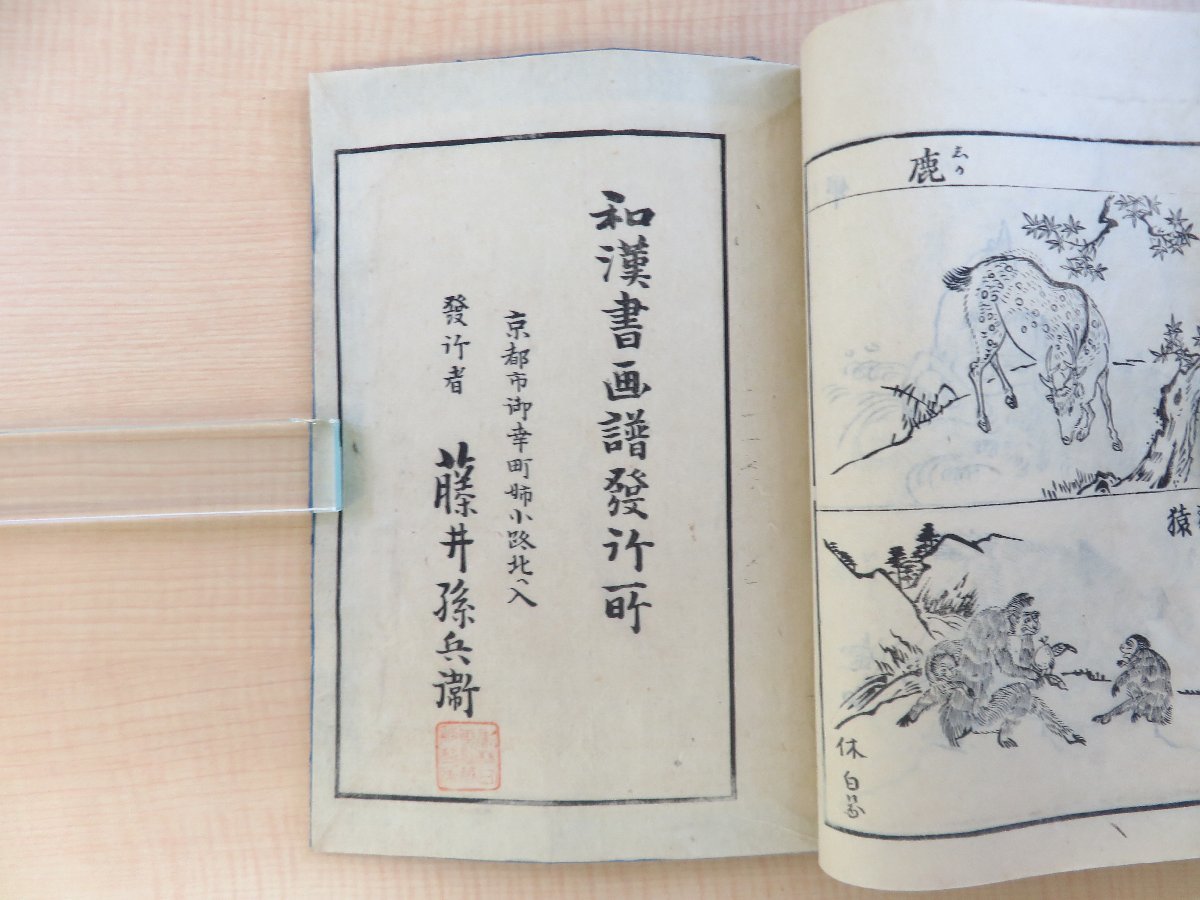 鹿
しか
猿
休白画
和漢書画譜發行所
京都市御幸町姉小路北入
發行者 藤井孫兵衞